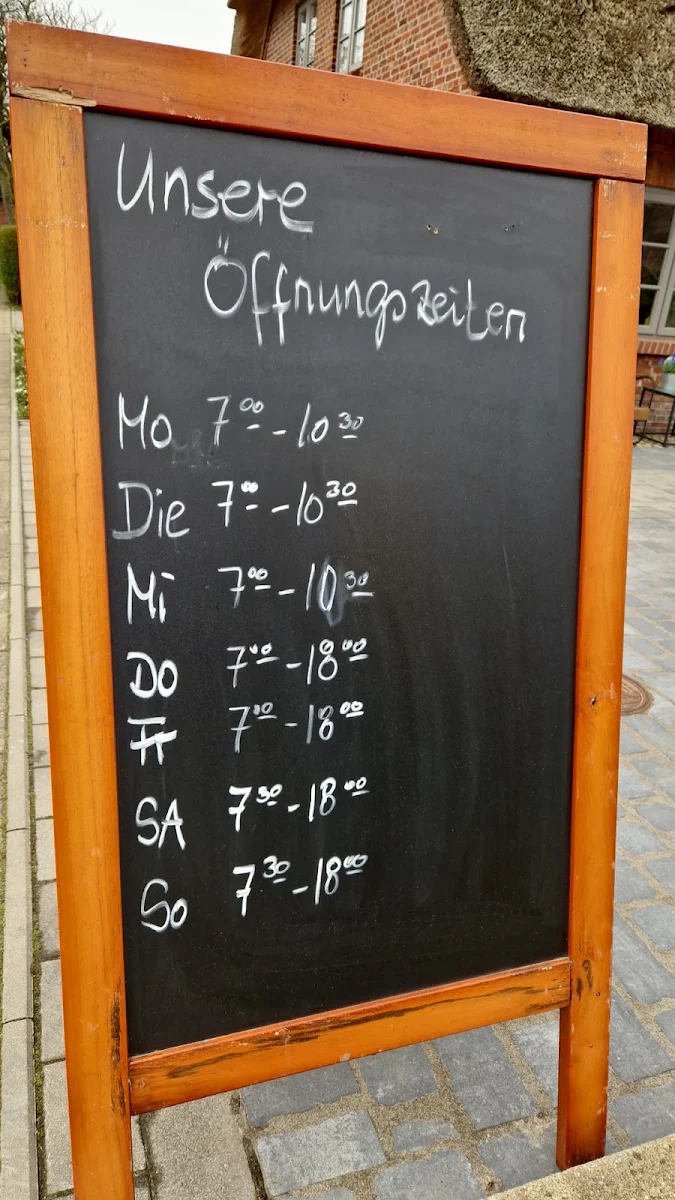 Unsere
Öffnungszeiten
Mo 7⁰⁰ - 10³⁰
Die 7⁰⁰ - 10³⁰
Mi 7⁰⁰ - 10³⁰
DO 7⁰⁰ - 18⁰⁰
Fr 7⁰⁰ - 18⁰⁰
SA 7³⁰ - 18⁰⁰
So 7³⁰ - 18⁰⁰